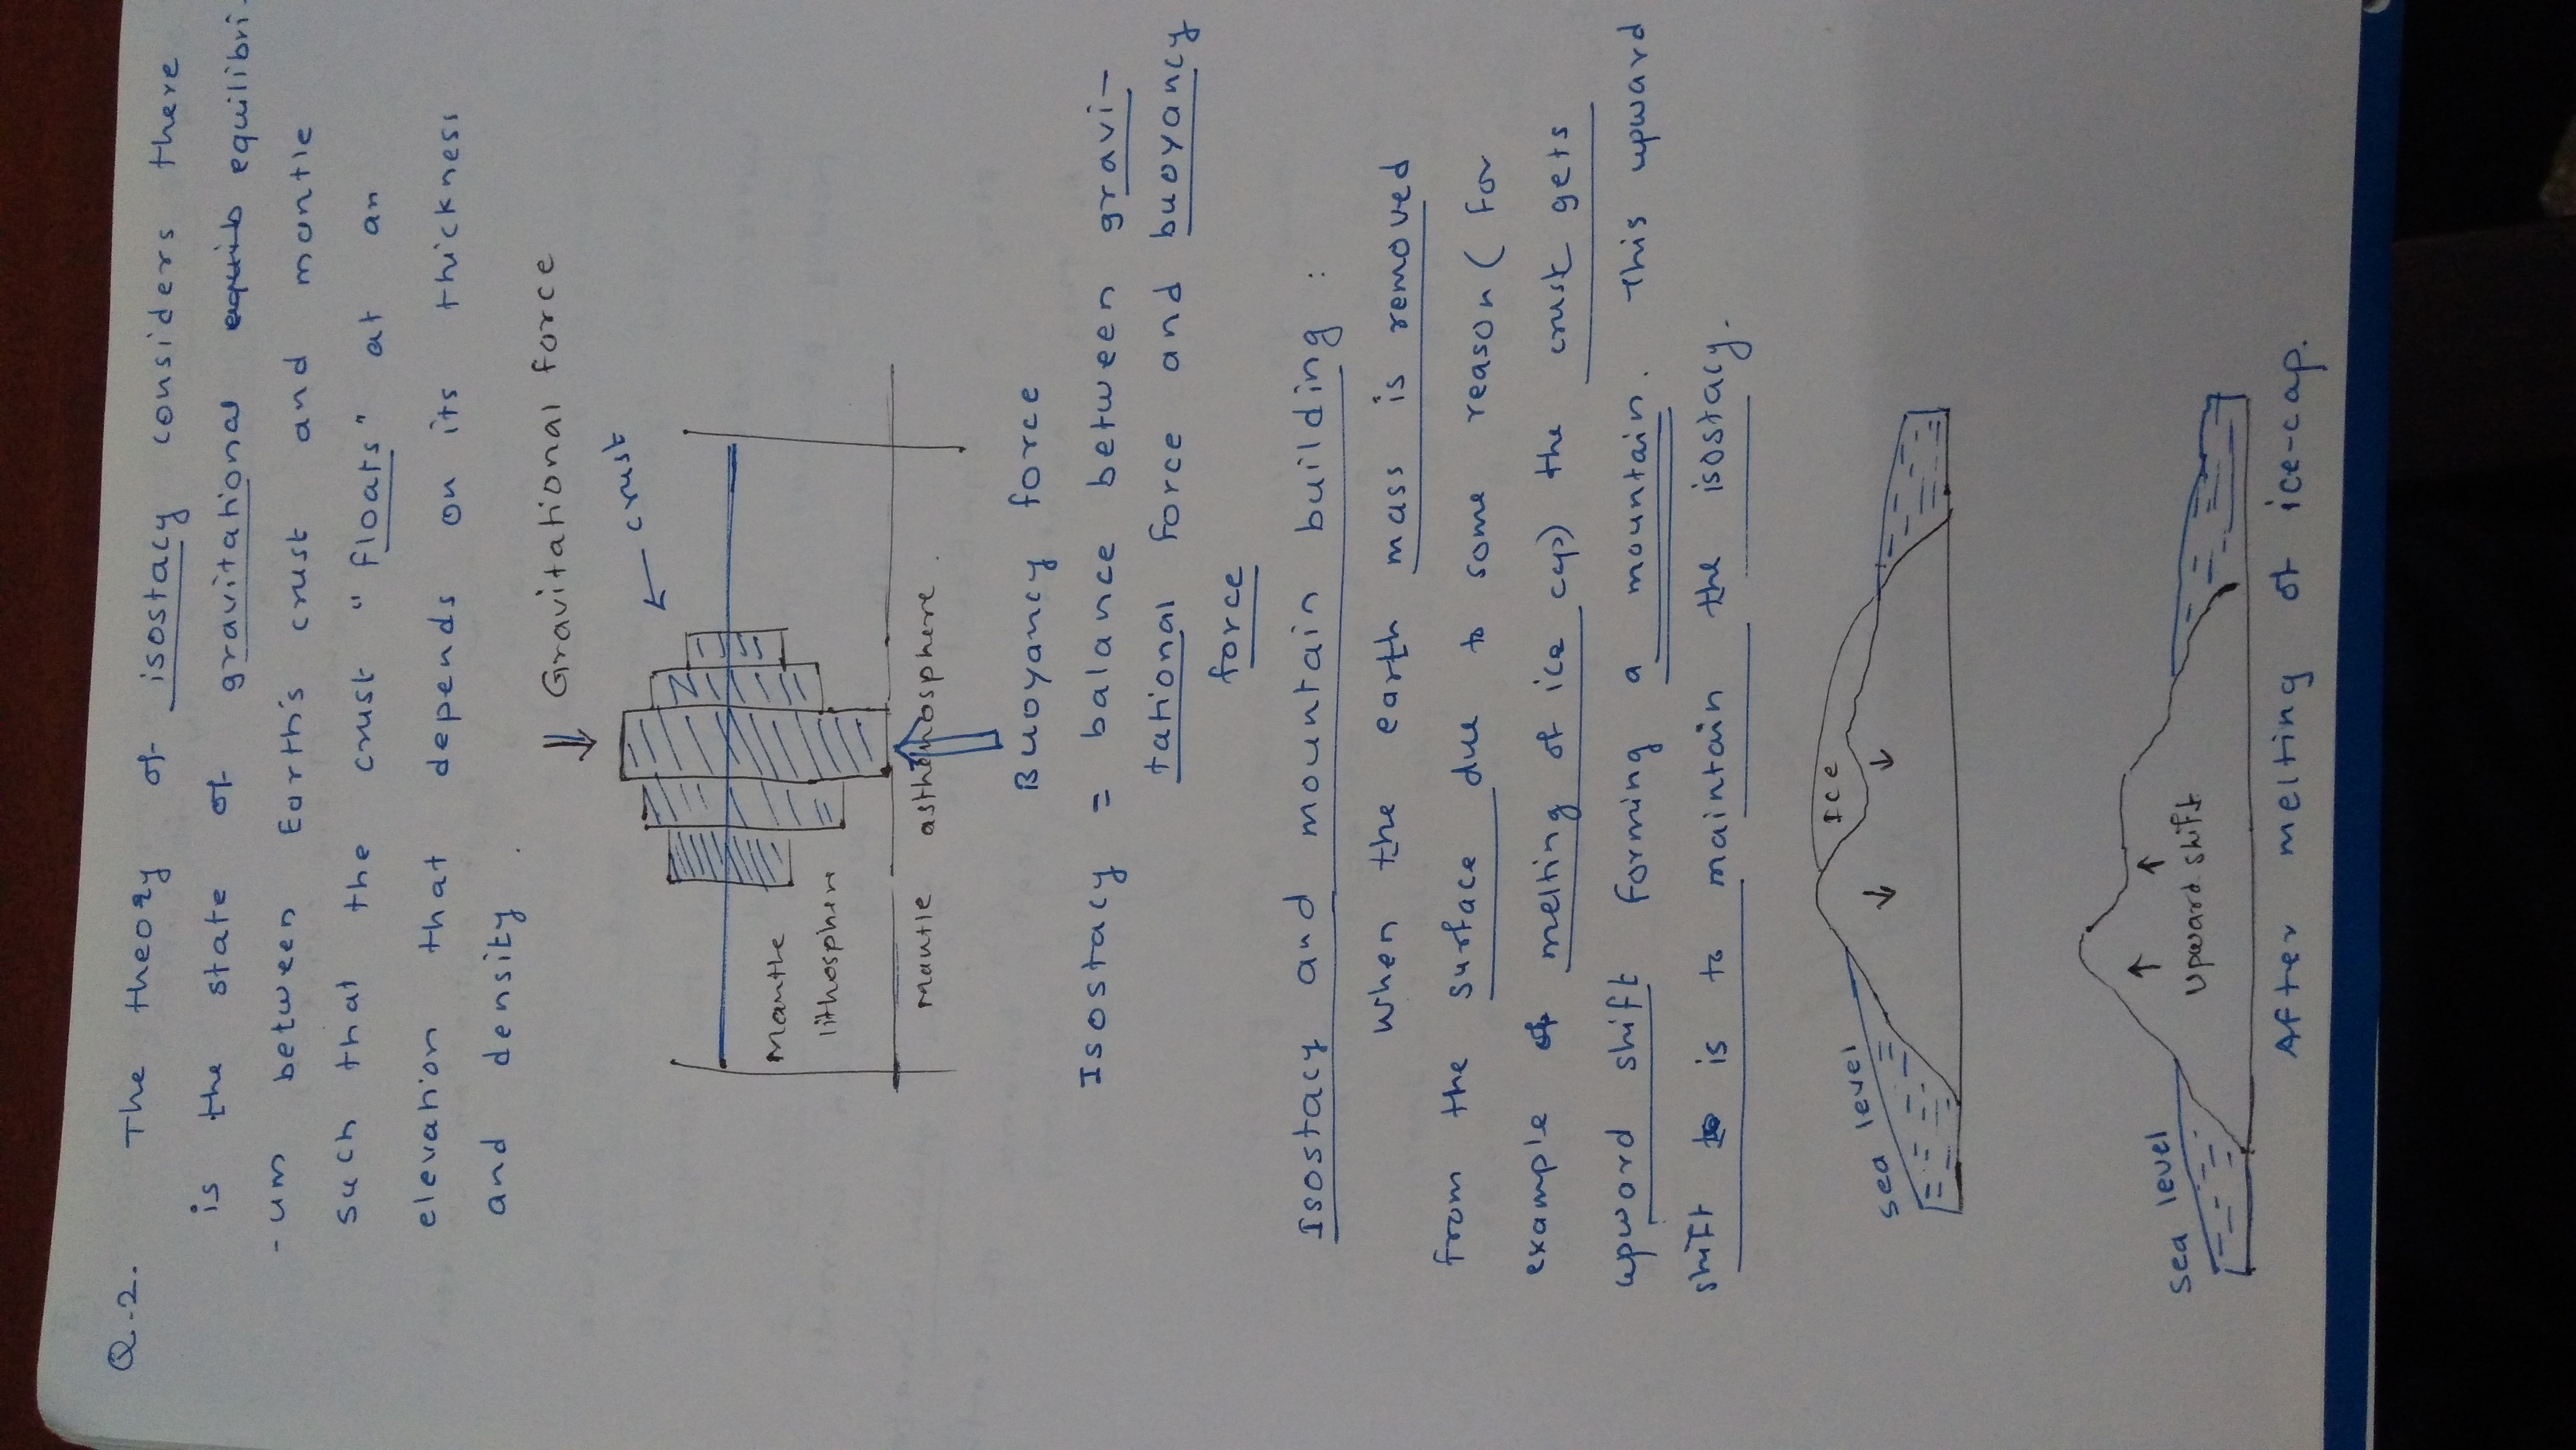 Q.2. The theory of isostacy considers there
is the state of gravitational equib equilibri-
-um between Earth's crust and mantle
such that the crust "floats" at an
elevation that depends on its thickness
and density.
Gravitational force
crust
Mantle
lithosphere
Mantle asthenosphere.
Buoyancy force
Isostacy = balance between gravi-
tational force and buoyancy
force
Isostacy and mountain building :
When the earth mass is removed
from the surface due to some reason (for
example of melting of ice cap) the crust gets
upword shift forming a mountain. This upward
shift to is to maintain the isostacy.
Ice
sea level
sea level
upward shift
After melting of ice-cap.